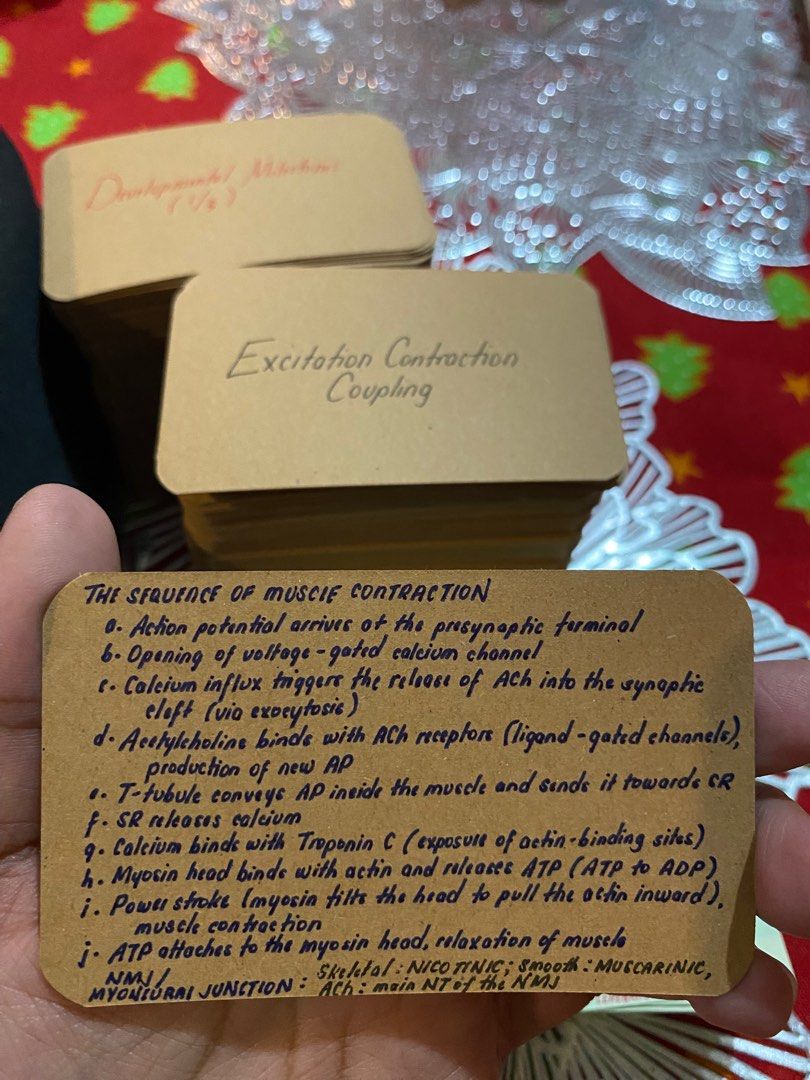 Developmental Milestones
(1/2)
Excitation Contraction
Coupling
THE SEQUENCE OF MUSCLE CONTRACTION
a. Action potential arrives at the presynaptic terminal
b. Opening of voltage-gated calcium channel
c. Calcium influx triggers the release of ACh into the synaptic
cleft (via exocytosis)
d. Acetylcholine binds with ACh receptors (ligand-gated channels),
production of new AP
e. T-tubule conveys AP inside the muscle and sends it towards SR
f. SR releases calcium
g. Calcium binds with Troponin C (exposure of actin-binding sites)
h. Myosin head binds with actin and releases ATP (ATP to ADP)
i. Power stroke (myosin tilts the head to pull the actin inward),
muscle contraction
j. ATP attaches to the myosin head, relaxation of muscle
NMJ/
MYONEURAL JUNCTION: Skeletal: NICOTINIC; Smooth: MUSCARINIC,
ACh: main NT of the NMJ